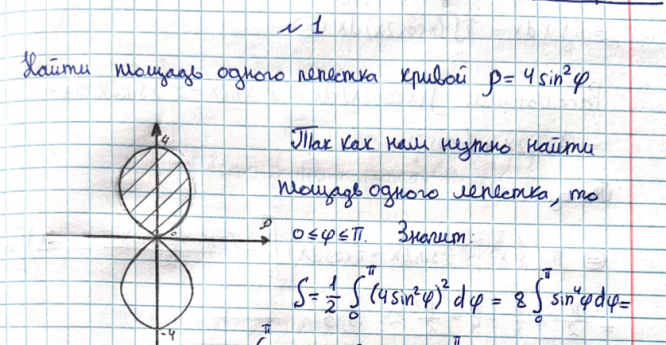 № 1
Найти площадь одного лепестка кривой ρ = 4 sin²φ.
4
Так как нам нужно найти
площадь одного лепестка, то
0 ≤ φ ≤ π. Значит:
ρ
0
S = 1/2 ∫₀^π (4 sin²φ)² dφ = 8 ∫₀^π sin⁴φ dφ =
-4